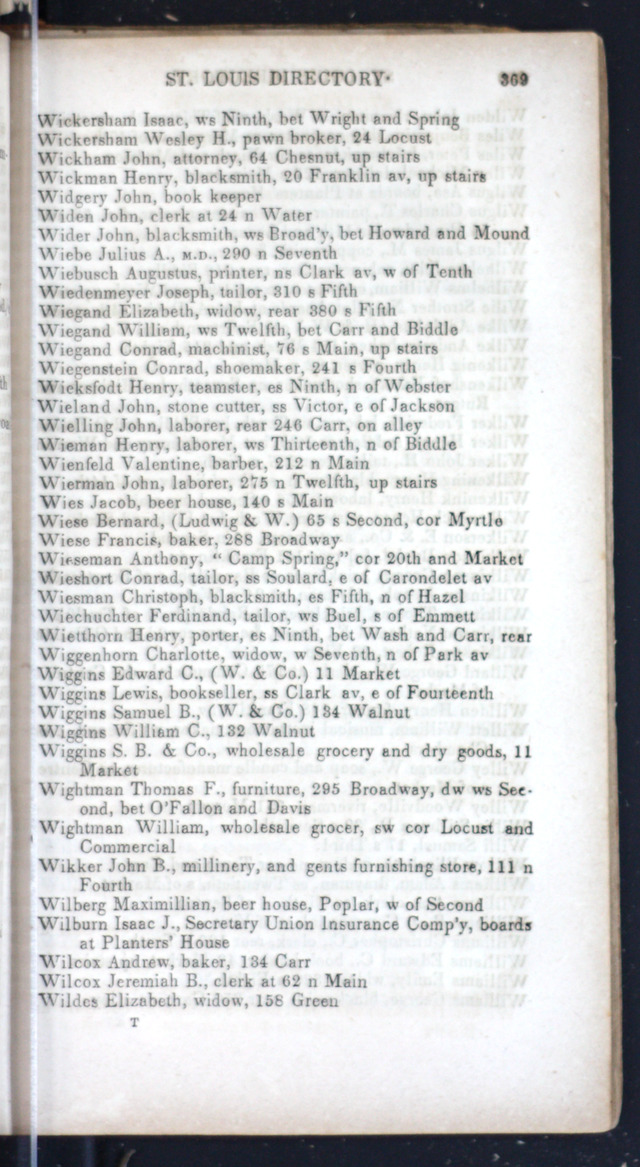 ST. LOUIS DIRECTORY. 369
Wickersham Isaac, ws Ninth, bet Wright and Spring
Wickersham Wesley H., pawn broker, 24 Locust
Wickham John, attorney, 64 Chesnut, up stairs
Wickman Henry, blacksmith, 20 Franklin av, up stairs
Widgery John, book keeper
Widen John, clerk at 24 n Water
Wider John, blacksmith, ws Broad'y, bet Howard and Mound
Wiebe Julius A., M.D., 290 n Seventh
Wiebusch Augustus, printer, ns Clark av, w of Tenth
Wiedenmeyer Joseph, tailor, 310 s Fifth
Wiegand Elizabeth, widow, rear 380 s Fifth
Wiegand William, ws Twelfth, bet Carr and Biddle
Wiegand Conrad, machinist, 76 s Main, up stairs
Wiegenstein Conrad, shoemaker, 241 s Fourth
Wieksfodt Henry, teamster, es Ninth, n of Webster
Wieland John, stone cutter, ss Victor, e of Jackson
Wielling John, laborer, rear 246 Carr, on alley
Wieman Henry, laborer, ws Thirteenth, n of Biddle
Wienfeld Valentine, barber, 212 n Main
Wierman John, laborer, 275 n Twelfth, up stairs
Wies Jacob, beer house, 140 s Main
Wiese Bernard, (Ludwig & W.) 65 s Second, cor Myrtle
Wiese Francis, baker, 288 Broadway
Wieseman Anthony, “ Camp Spring,” cor 20th and Market
Wieshort Conrad, tailor, ss Soulard, e of Carondelet av
Wiesman Christoph, blacksmith, es Fifth, n of Hazel
Wiechuchter Ferdinand, tailor, ws Buel, s of Emmett
Wietthorn Henry, porter, es Ninth, bet Wash and Carr, rear
Wiggenhorn Charlotte, widow, w Seventh, n of Park av
Wiggins Edward C., (W. & Co.) 11 Market
Wiggins Lewis, bookseller, ss Clark av, e of Fourteenth
Wiggins Samuel B., (W. & Co.) 134 Walnut
Wiggins William C., 132 Walnut
Wiggins S. B. & Co., wholesale grocery and dry goods, 11
Market
Wightman Thomas F., furniture, 295 Broadway, dw ws Sec-
ond, bet O'Fallon and Davis
Wightman William, wholesale grocer, sw cor Locust and
Commercial
Wikker John B., millinery, and gents furnishing store, 111 n
Fourth
Wilberg Maximillian, beer house, Poplar, w of Second
Wilburn Isaac J., Secretary Union Insurance Comp'y, boards
at Planters' House
Wilcox Andrew, baker, 134 Carr
Wilcox Jeremiah B., clerk at 62 n Main
Wildes Elizabeth, widow, 158 Green
T